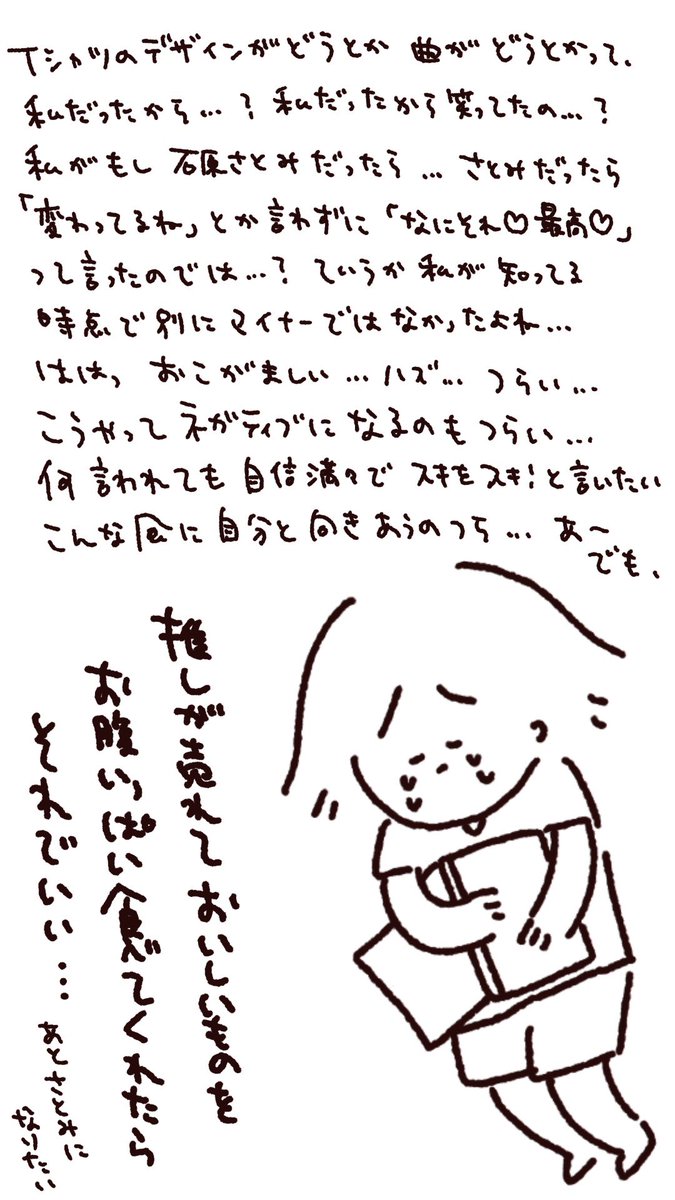 Tシャツのデザインがどうとか 曲がどうとかって、
私だったから…？私だったから笑ってたの…？
私がもし石原さとみだったら…さとみだったら
「変わってるね」とか言わずに「なにそれ♡最高♡」
って言ったのでは…？ていうか私が知ってる
時点で別にマイナーではなかったよね…
ははっ おこがましい…ハズ…つらい…
こうやってネガティブになるのもつらい…
何言われても自信満々でスキをスキ！と言いたい
こんな風に自分と向きあうのつら…あ〜
でも、
推しが売れておいしいものを
お腹いっぱい食べてくれたら
それでいい…
あとさとみに
なりたい